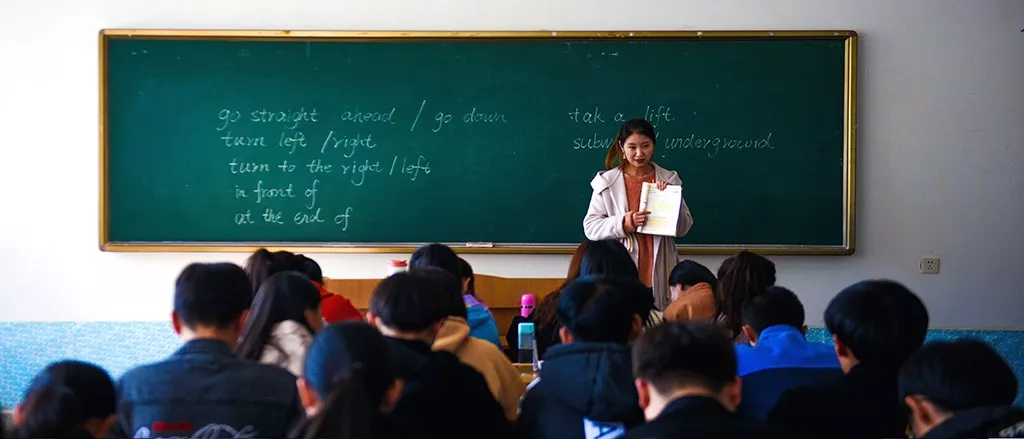 go straight ahead / go down
turn left / right
turn to the right / left
in front of
at the end of
tak a lift
underground